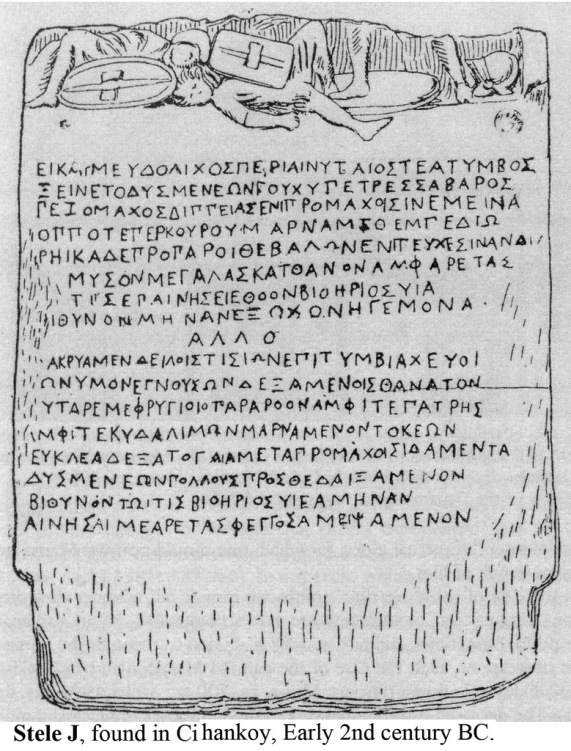 ΕΙΚΑΙΜΕΥΔΟΛΙΧΟΣΠΕΡΙΑΙΝΥΤΑΙΟΣΤΕΑΤΥΜΒΟΣ
ΞΕΙΝΕΤΟΔΥΣΜΕΝΕΩΝΓΟΥΧΥΠΕΤΡΕΣΣΑΒΑΡΟΣ
ΠΕΖΟΜΑΧΟΣΔΙΠΠΕΙΑΣΕΝΙΠΡΟΜΑΧΟΙΣΙΝΕΜΕΙΝΑ
ΟΠΠΟΤΕΠΕΡΚΟΥΡΟΥΜΑΡΝΑΜΕΘΕΜΠΕΔΙΩ
ΡΗΙΚΑΔΕΠΡΟΠΑΡΟΙΘΕΒΑΛΩΝΕΝΙΤΕΥΧΕΣΙΝΑΝΔ
ΜΥΣΟΝΜΕΓΑΛΑΣΚΑΤΘΑΝΟΝΑΜΦΑΡΕΤΑΣ
ΤΙΣΕΠΑΙΝΗΣΕΙΕΘΟΟΝΒΙΟΗΡΙΟΣΥΙΑ
ΙΘΥΝΟΝΜΗΝΑΝΕΞΟΧΩΝΗΓΕΜΟΝΑ
ΑΛΛΟ
ΑΚΡΥΑΜΕΝΔΕΙΛΟΙΣΤΙΣΙΩΝΕΠΙΤΥΜΒΙΑΧΕΥΟΙ
ΩΝΥΜΟΝΕΓΝΟΥΣΩΝΔΕΞΑΜΕΝΟΙΣΘΑΝΑΤΟΝ
ΥΤΑΡΕΜΕΦΡΥΓΙΟΙΟΠΑΡΑΡΟΟΝΑΜΦΙΤΕΠΑΤΡΗΣ
ΜΦΙΤΕΚΥΔΑΛΙΜΩΝΜΑΡΝΑΜΕΝΟΝΤΟΚΕΩΝ
ΕΥΚΛΕΑΔΕΞΑΤΟΓΑΙΑΜΕΤΑΠΡΟΜΑΧΟΙΣΙΔΑΜΕΝΤΑ
ΔΥΣΜΕΝΕΩΝΠΟΛΛΟΥΣΠΡΟΣΘΕΔΑΙΞΑΜΕΝΟΝ
ΒΙΘΥΝΟΝΤΩΙΤΙΣΒΙΟΗΡΙΟΣΥΙΕΑΜΗΝΑΝ
ΑΙΝΗΣΑΙΜΕΑΡΕΤΑΣΦΕΓΓΟΣΑΜΕΙΨΑΜΕΝΟΝ
Stele J, found in Cihankoy, Early 2nd century BC.